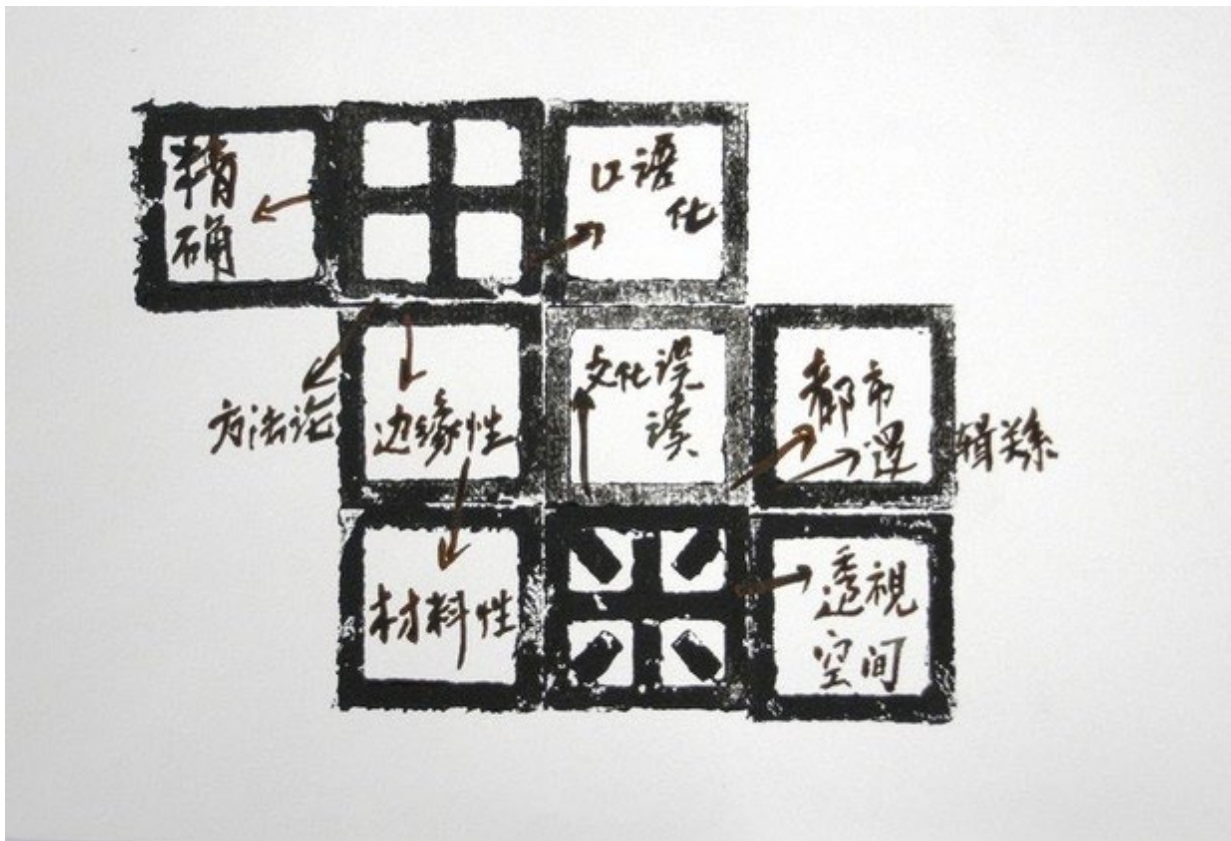 精
确
口语
化
方法论
边缘性
文化误
读
都市
逻辑关系
材料性
透視
空间